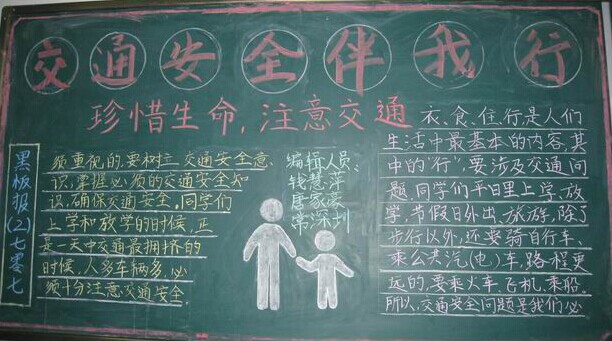 交通安全伴我行
珍惜生命,注意交通
衣、食、住、行是人们
生活中最基本的内容,其
中的“行”,要涉及交通问
题,同学们平日里上学、放
学,节假日外出、旅游,除了
步行以外,还要骑自行车、
乘公共汽(电)车,路程更
远的,要乘火车、飞机、乘船。
所以,交通安全问题是我们必
须重视的,要树立交通安全意
识,掌握必须的交通安全知
识,确保交通安全。同学们
上学和放学的时候,正
是一天中交通最拥挤的
时候,人多车辆多,必
须十分注意交通安全。
编辑人员:
钱慧萍
唐家濠
常深圳
黑板报(2)七零七